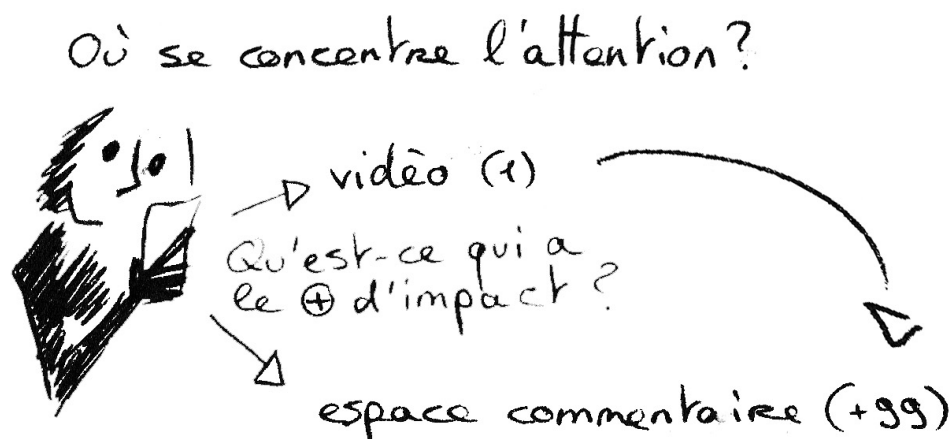 Où se concentre l'attention?
vidéo (1)
Qu'est-ce qui a
le ⊕ d'impact?
espace commentaire (+99)